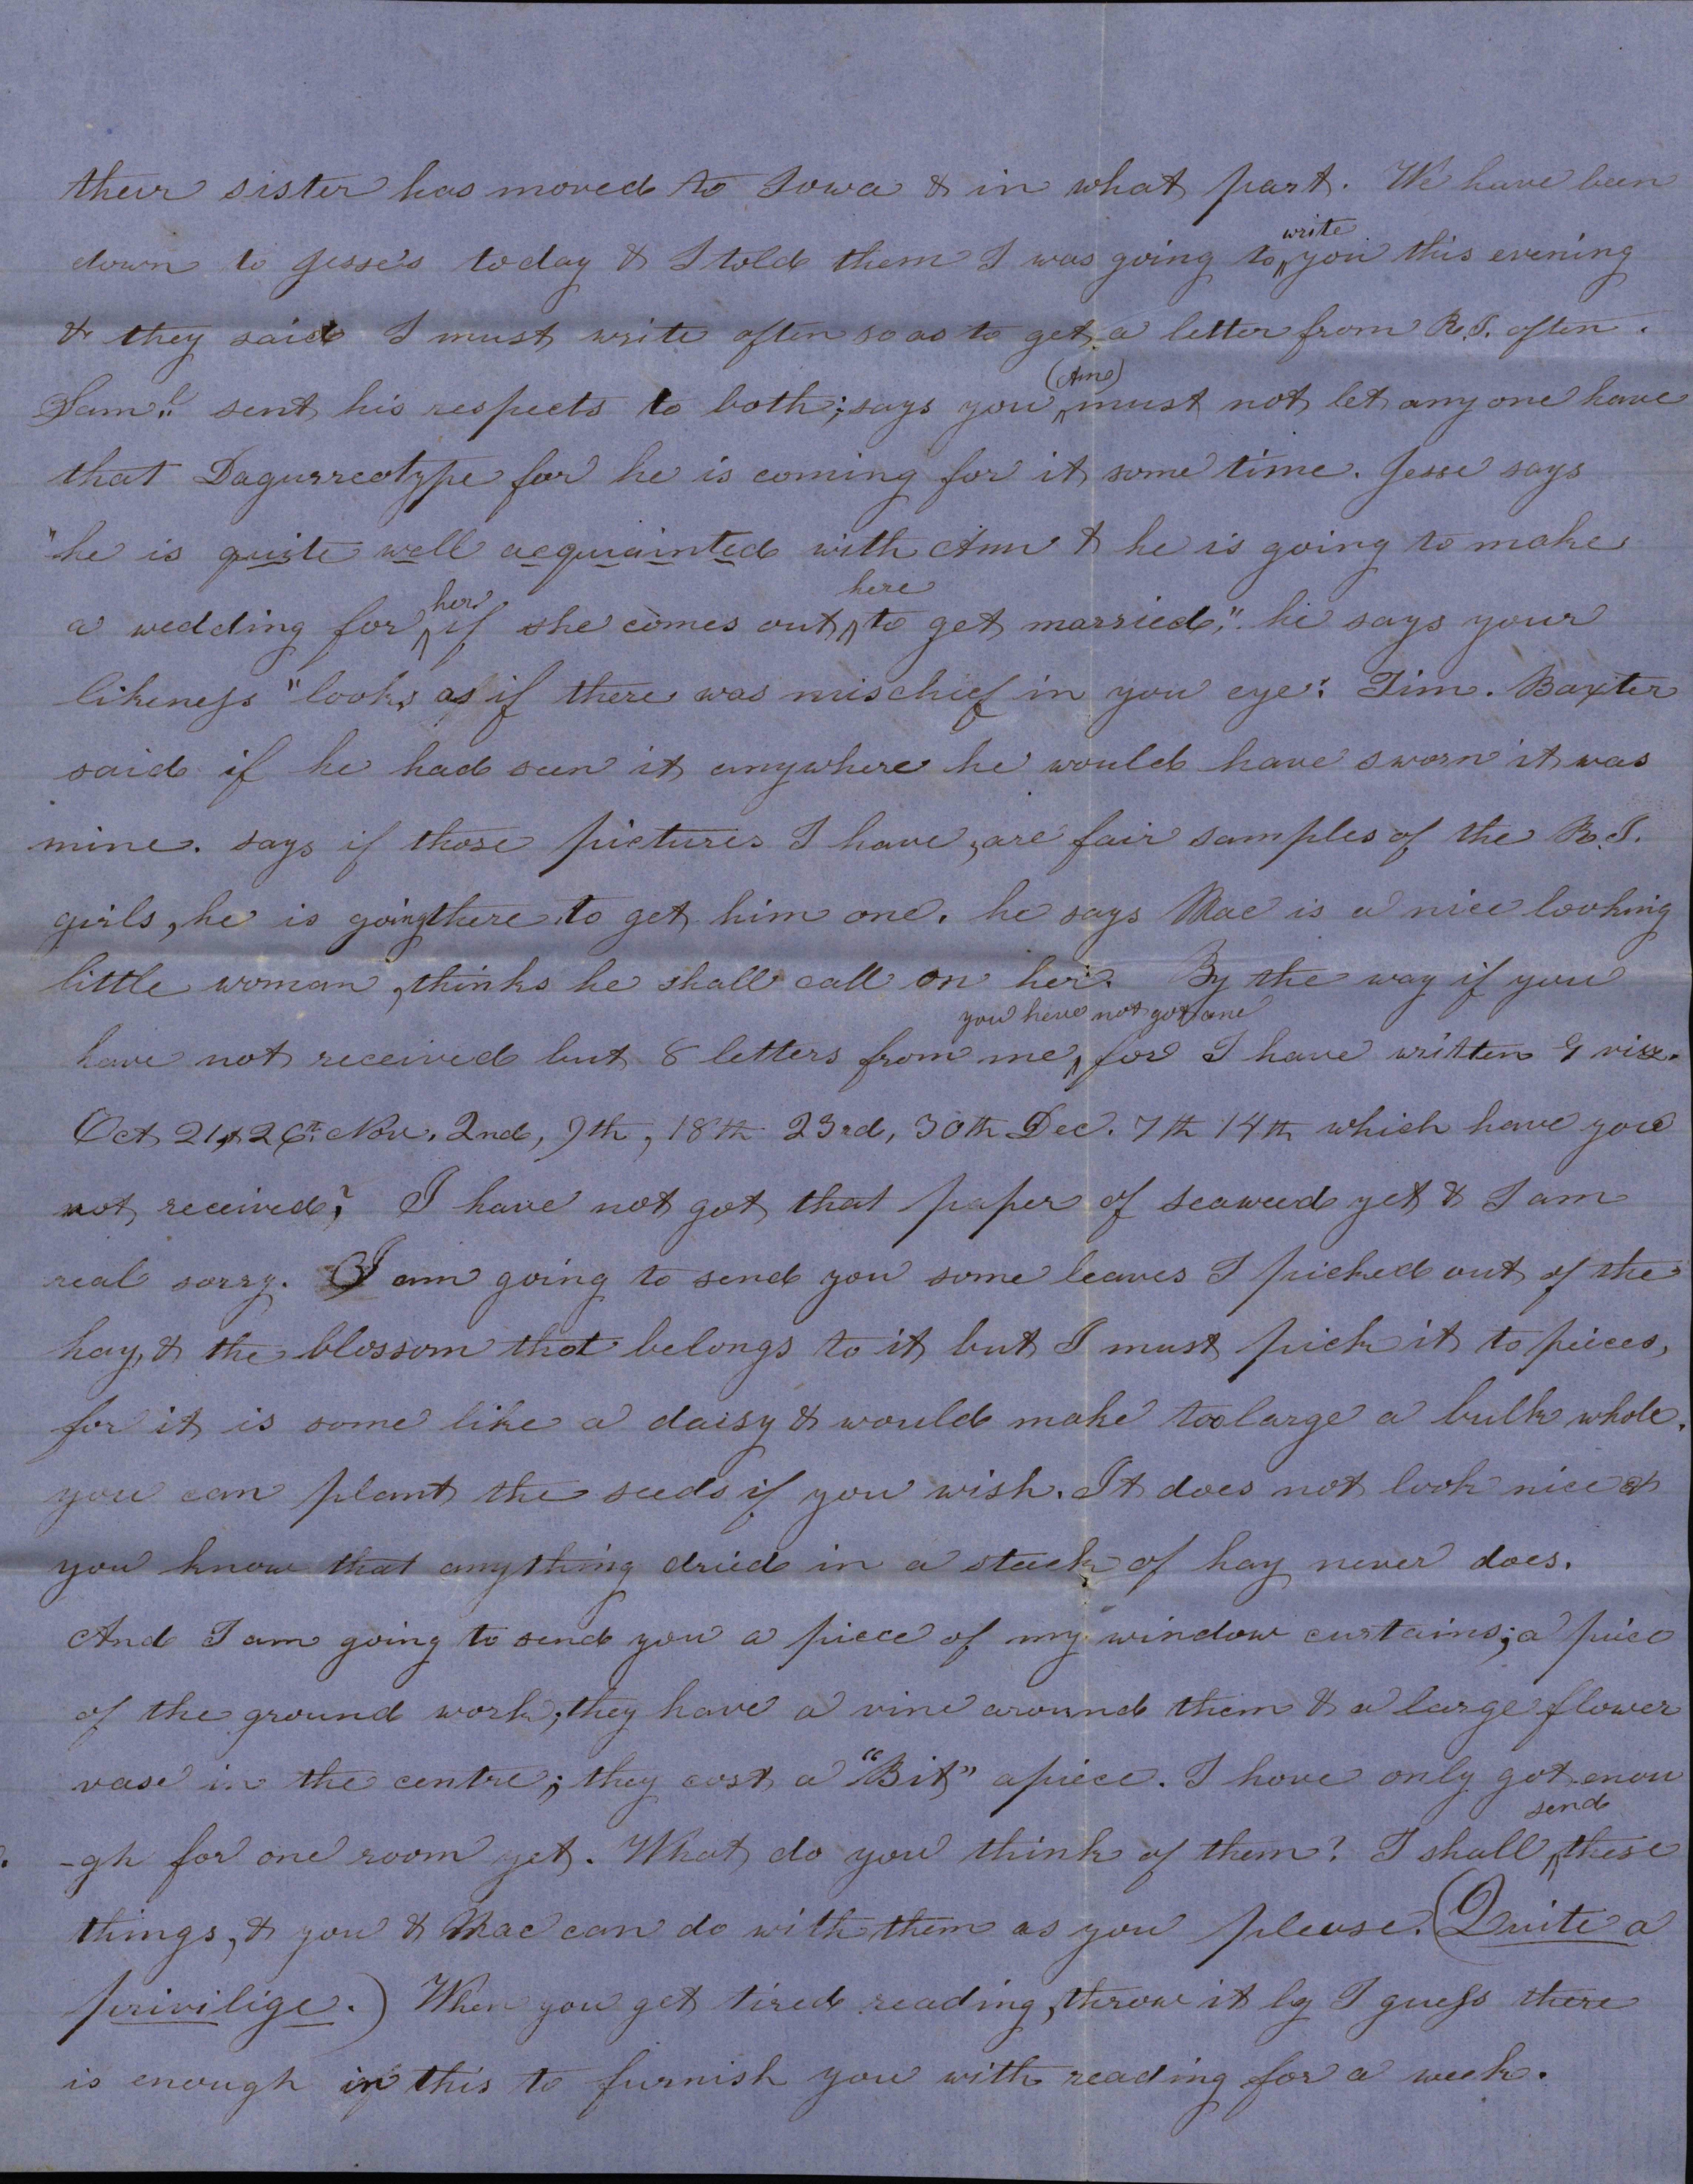 their sister has moved to Iowa & in what part. We have been
down to Jesse's today & I told them I was going to write you this evening
& they said I must write often so as to get a letter from R.I. often.
Saml. sent his respects to both; says you (Ann) must not let any one have
that Dagurreotype for he is coming for it some time. Jesse says
"he is quite well acquainted with Ann & he is going to make
a wedding for her if she comes out here to get married," he says your
likeness "looks as if there was mischief in you eye". Tim. Baxter
said if he had seen it anywhere he would have sworn it was
mine. says if those pictures I have, are fair samples of the R.I.
girls, he is going there to get him one. he says Mac is a nice looking
little woman, thinks he shall call on her. By the way if you
have not received but 8 letters from me, you have not got one for I have written 9 viz.
Oct 21, & 26th. Nov. 2nd, 9th, 18th 23rd, 30th Dec. 7th 14th which have you
not received? I have not got that paper of seaweed yet & I am
real sorry. I am going to send you some leaves I picked out of the
hay, & the blossom that belongs to it but I must pick it to pieces,
for it is some like a daisy & would make too large a bulk whole.
you can plant the seeds if you wish. It does not look nice &
you know that anything dried in a stack of hay never does.
And I am going to send you a piece of my window curtains; a piece
of the ground work; they have a vine around them & a large flower
vase in the centre; they cost a "Bit" apiece. I have only got enou
-gh for one room yet. What do you think of them? I shall send these
things, & you & Mac can do with them as you please. (Quite a
privilige.) When you get tired reading, throw it by I guess there
is enough in this to furnish you with reading for a week.